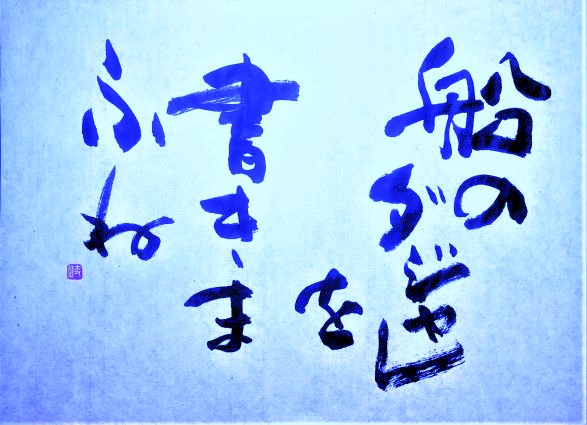 船のダジャレ
を
書きま
ふね